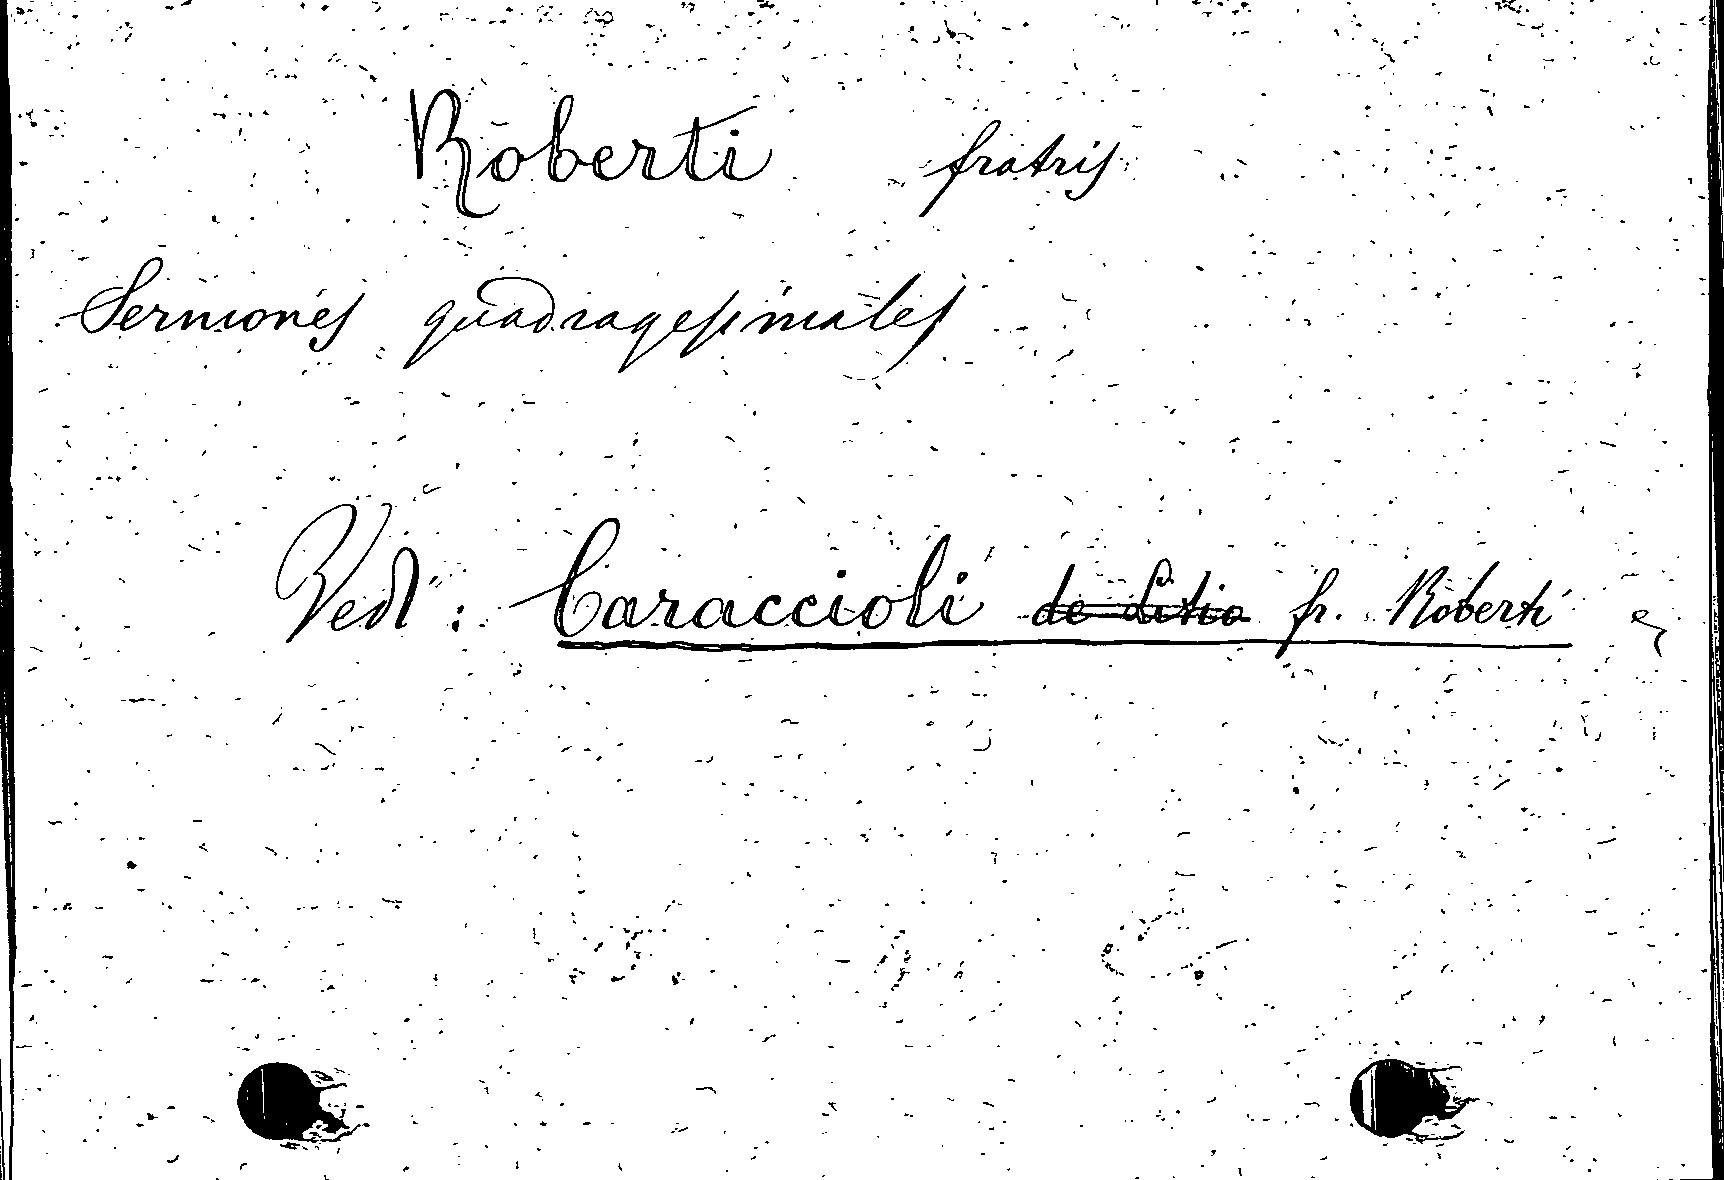 Roberti fratris
Sermones quadragesimales
Vedi: Caraccioli de Litio fr. Roberti